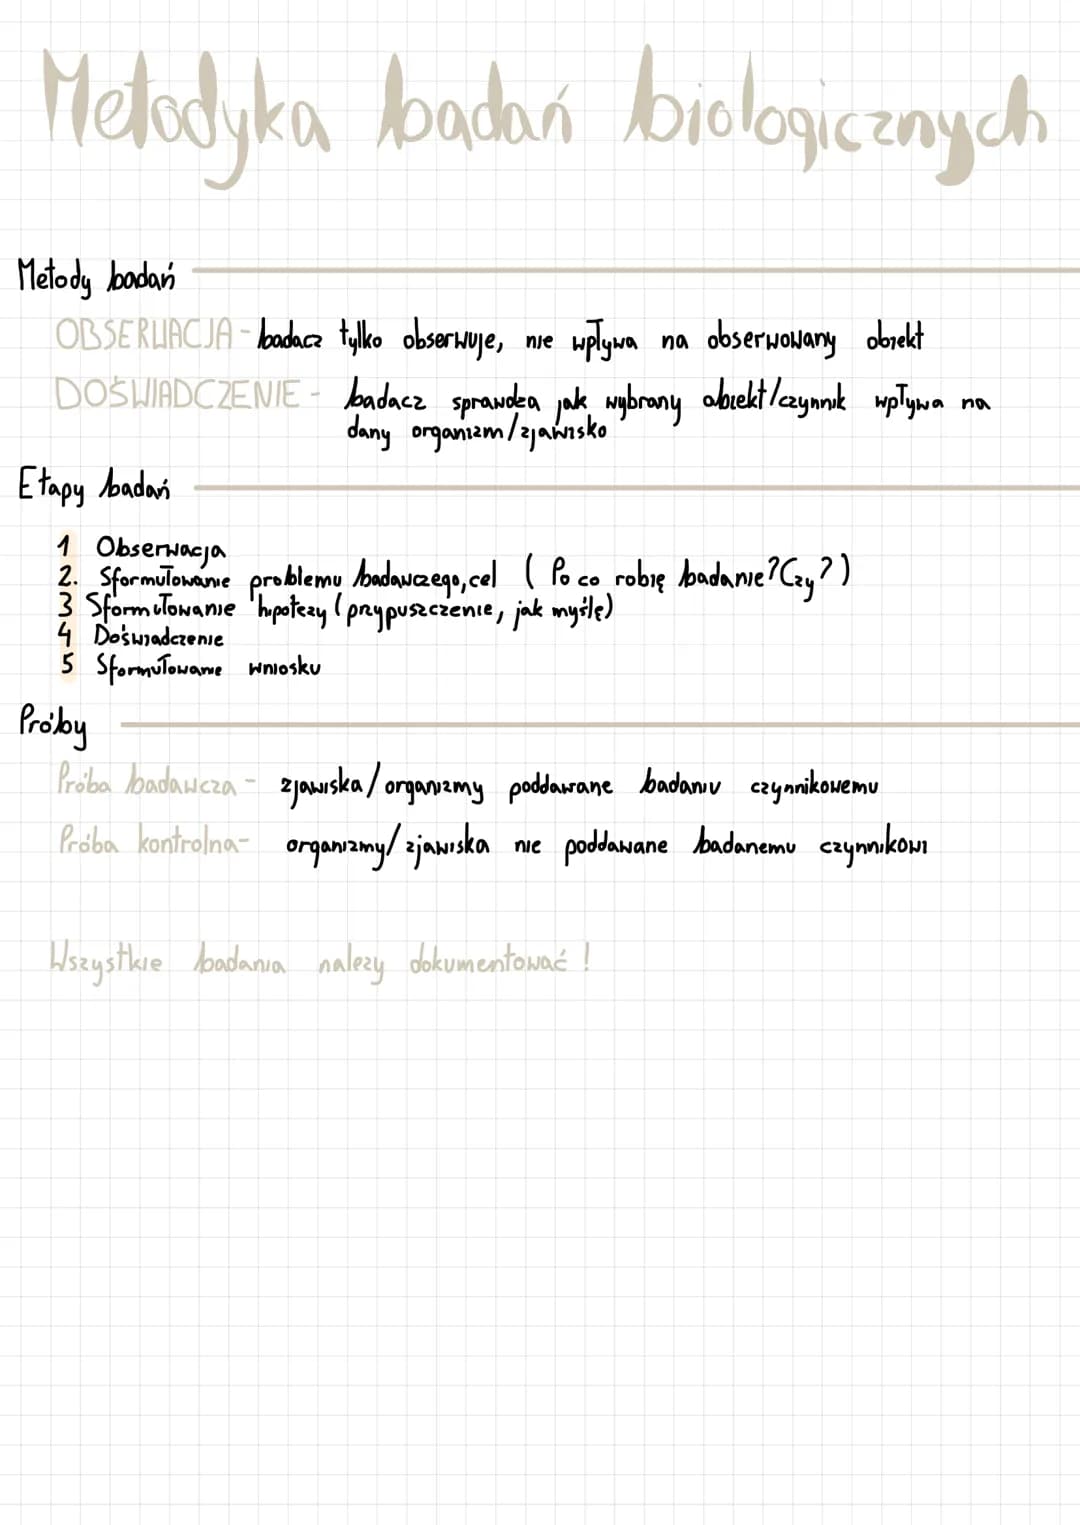 Metodyka badań biologicznych
Metody badań
OBSERWACJA - badacz tylko obserwuje, nie wpływa na obserwowany obiekt
DOŚWIADCZENIE - badacz sprawdza jak wybrany obiekt/czynnik wpływa na
dany organizm/zjawisko
Etapy badań
1 Obserwacja
2. Sformułowanie problemu badawczego, cel ( Po co robię badanie? Czy?)
3 Sformułowanie hipotezy (przypuszczenie, jak myślę)
4 Doświadczenie
5 Sformułowanie wniosku
Próby
Próba badawcza - zjawiska/organizmy poddawane badaniu czynnikowemu
Próba kontrolna- organizmy/zjawiska nie poddawane badanemu czynnikowi
Wszystkie badania nalezy dokumentować !